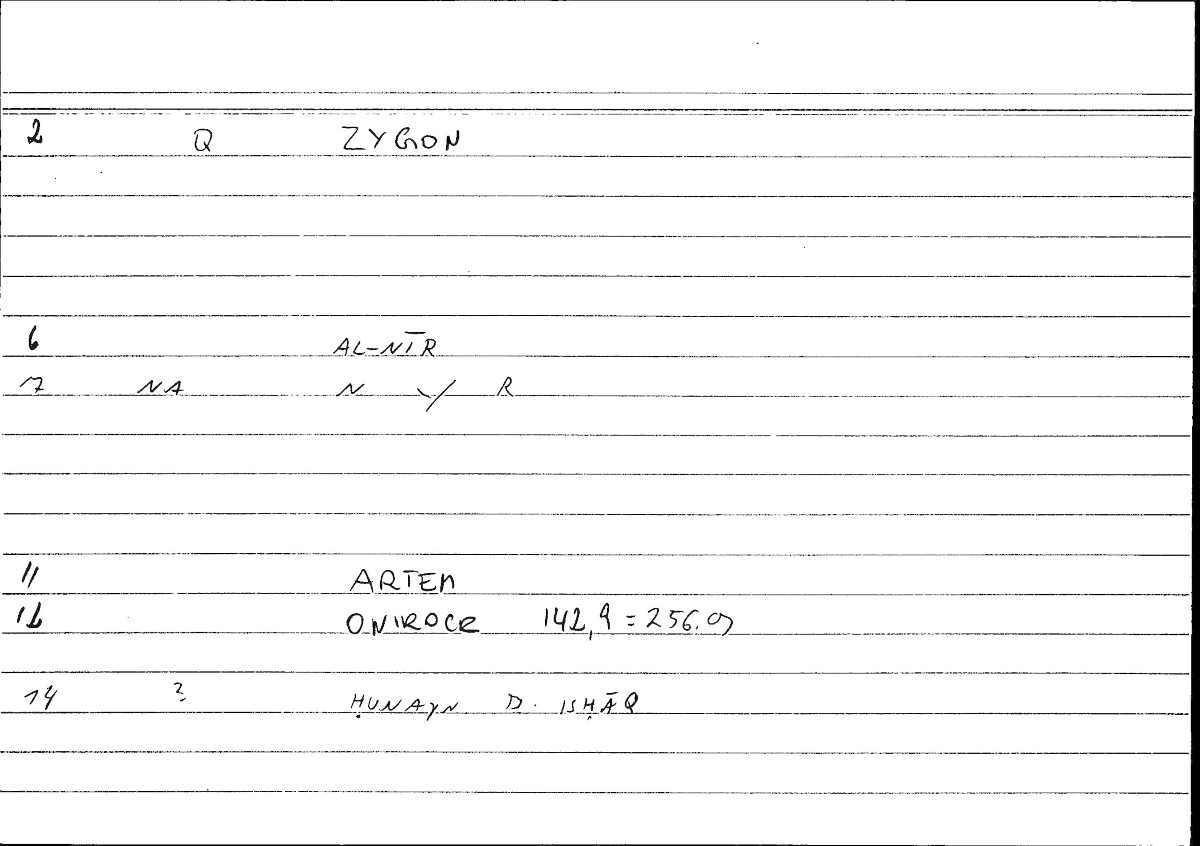 2 Q ZYGON
6 AL-NĪR
7 NA N Y R
11 ARTEM
12 ONIROCR 142,9 = 256.9
14 ? ḤUNAYN B. ISḤĀQ